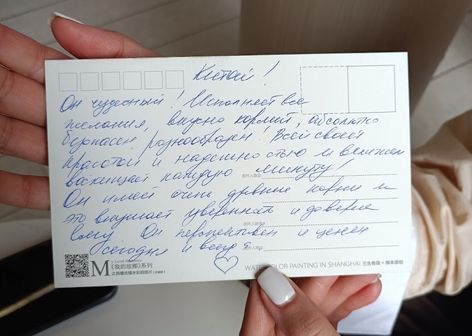 Китай!
Он чудесный! Исполнил все
желания, вкусно кормил, абсолютно
безопасен, разнообразен! Всей своей
красотой и надежностью и величием
восхищает каждую минуту
Он имеет очень древние корни и
это внушает уверенность и доверие
Он перспективен и ценен
сегодня и всегда
M
《我的故鄉》系列
WATERCOLOR PAINTING IN SHANGHAI